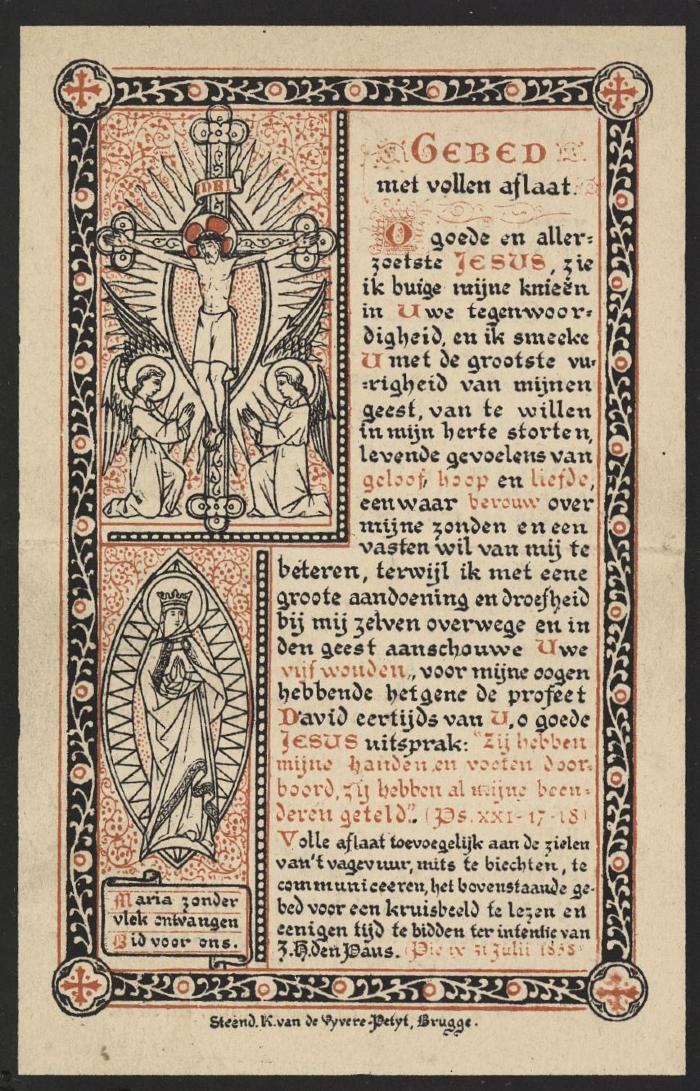 GEBED
met vollen aflaat.
O goede en aller=
zoetste JESUS, zie
ik buige mijne knieën
in Uwe tegenwoor=
digheid, en ik smeeke
U met de grootste vu=
=righeid van mijnen
geest, van te willen
in mijn herte storten,
levende gevoelens van
geloof, hoop en liefde,
een waar berouw over
mijne zonden en een
vasten wil van mij te
beteren, terwijl ik met eene
groote aandoening en droefheid
bij mij zelven overwege en in
den geest aanschouwe Uwe
vijf wouden, voor mijne oogen
hebbende hetgene de profeet
David eertijds van U, o goede
JESUS uitsprak: "Zij hebben
mijne handen en voeten door=
boord, zij hebben al mijne been=
deren geteld". (Ps. XXI-17-18)
Volle aflaat toevoegelijk aan de zielen
van't vagevuur, mits te biechten, te
communiceeren, het bovenstaande ge=
bed voor een kruisbeeld te lezen en
eenigen tijd te bidden ter intentie van
Z.H. den Paus. (Pie IX 31 Julii 1858)
INRI
Maria zonder
vlek ontvangen
Bid voor ons.
Steend. K. van de Vyvere-Petyt, Brugge.